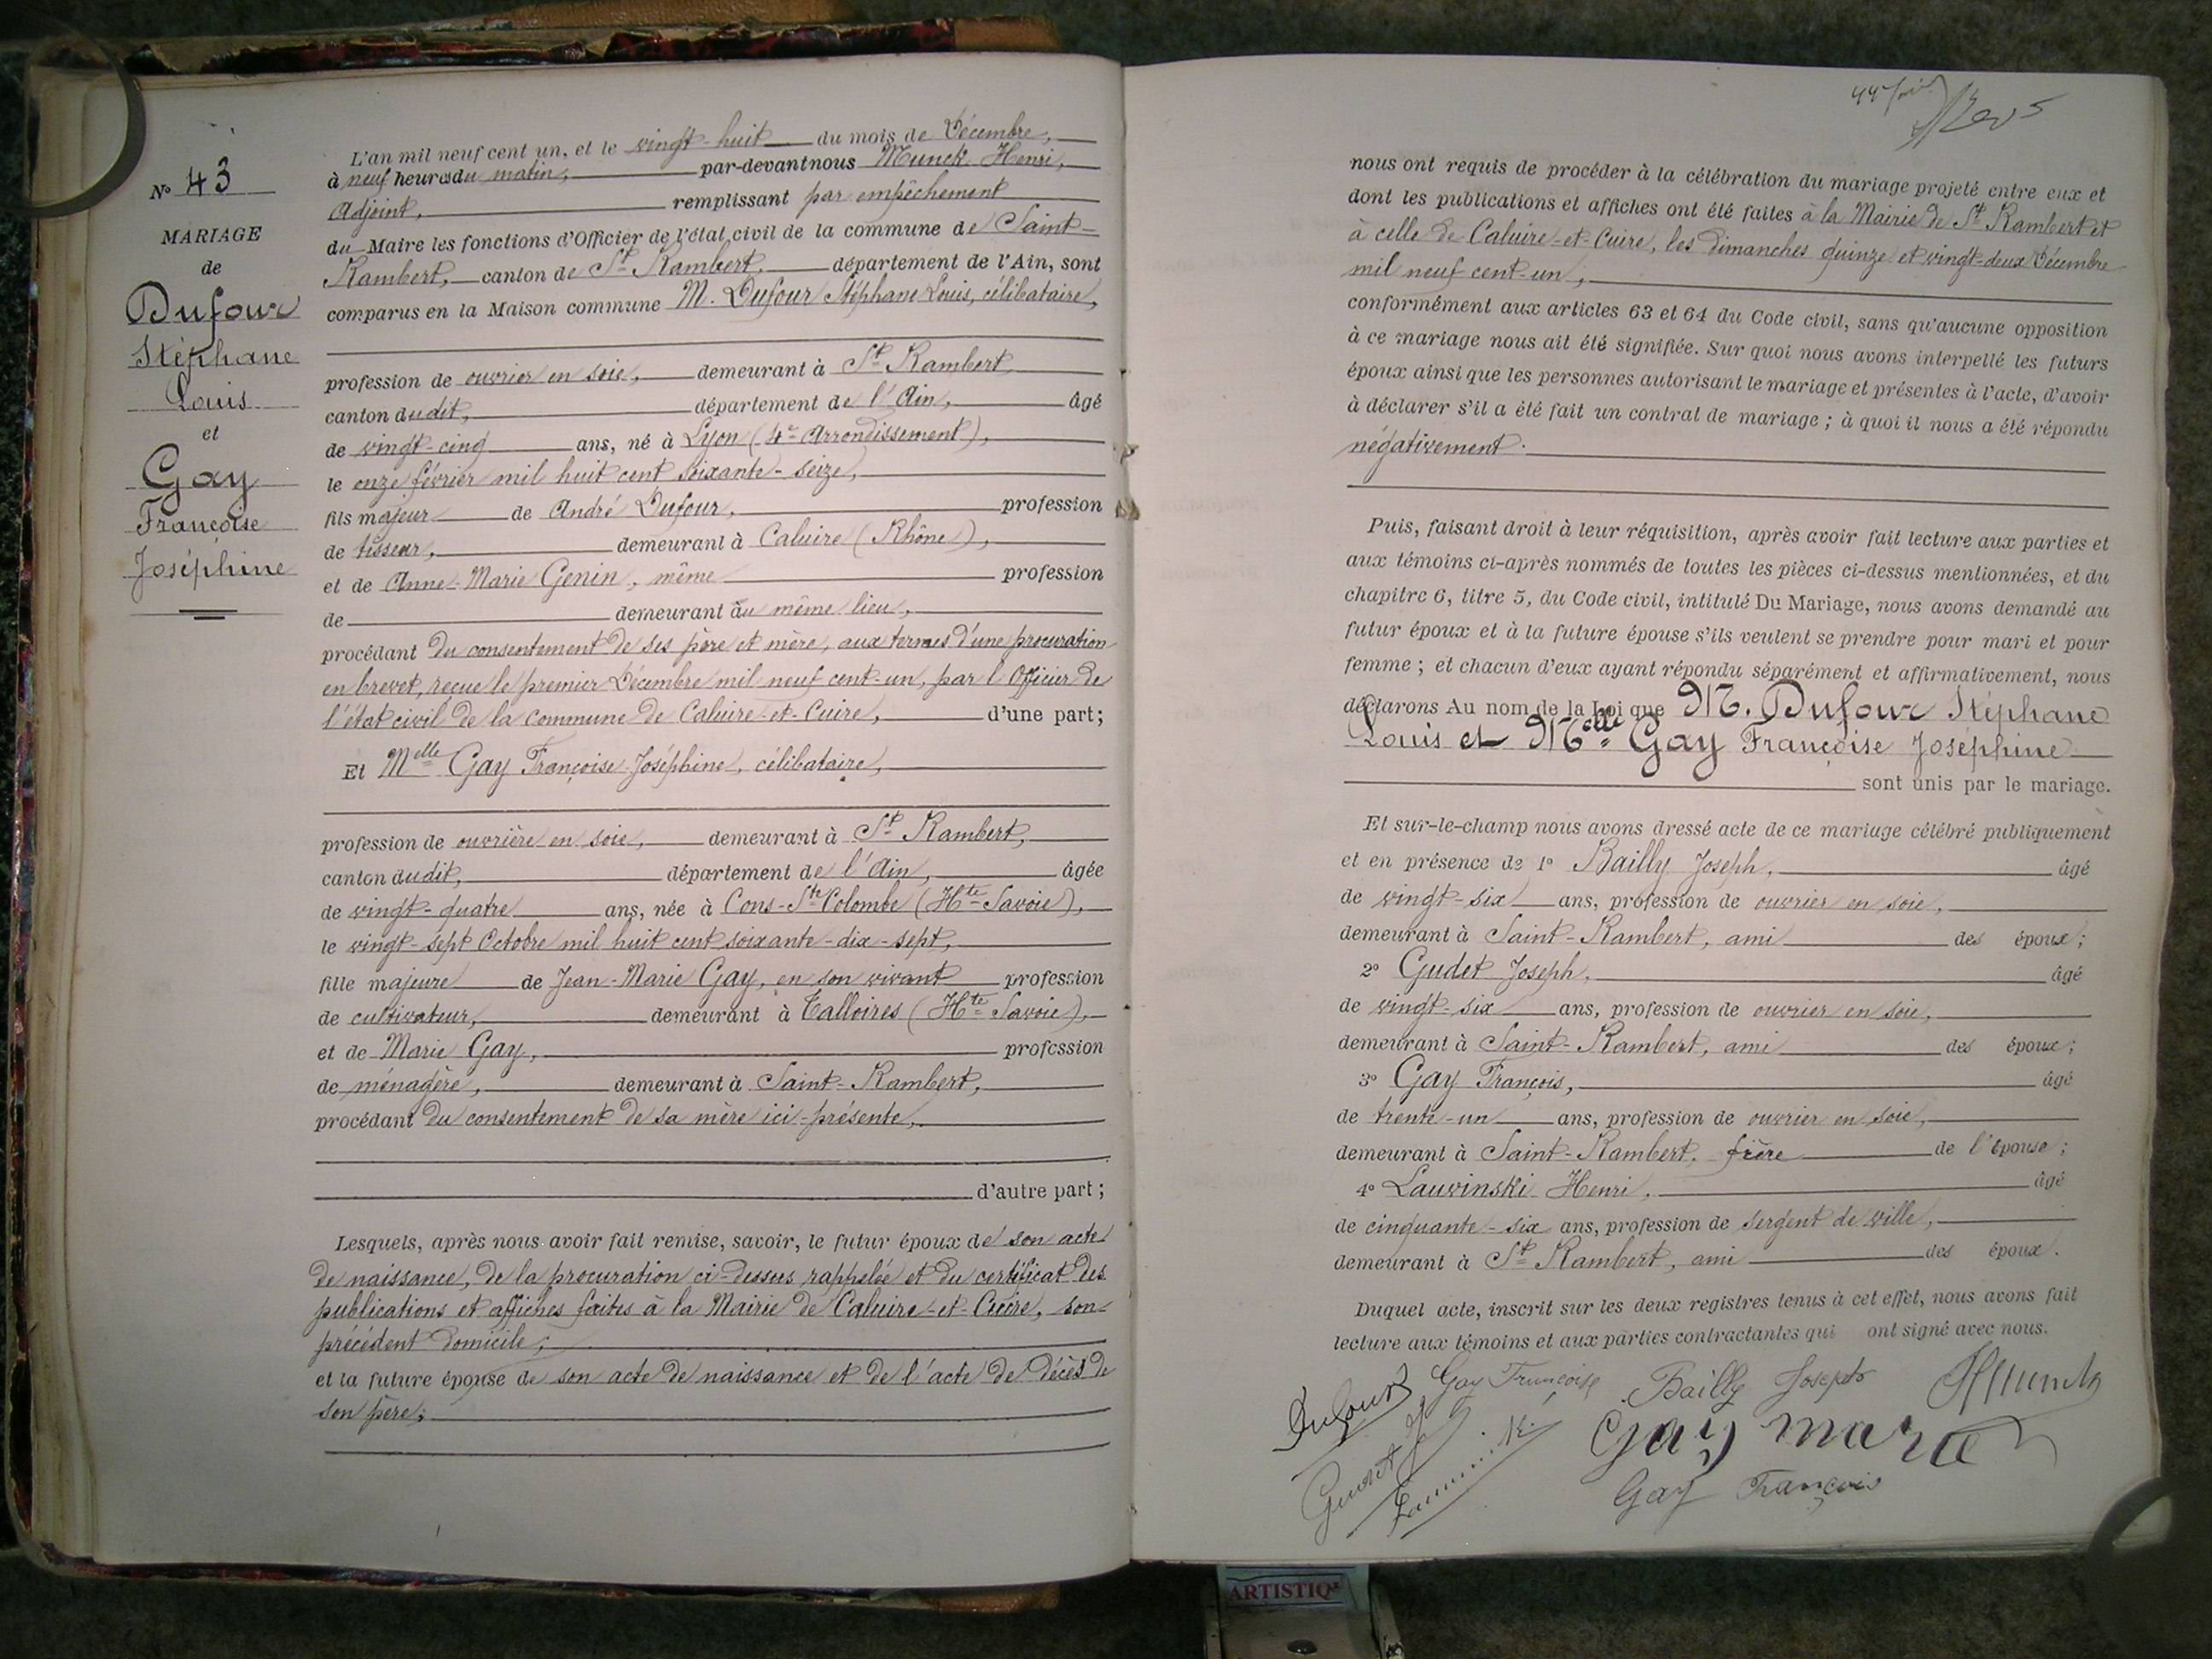 N° 43
MARIAGE
de
Dufour
Stéphane
Louis
et
Gay
Françoise
Joséphine
L'an mil neuf cent un, et le vingt-huit du mois de Décembre,
à neuf heures du matin, par-devant nous Munck Henri,
Adjoint, remplissant par empêchement
du Maire les fonctions d'Officier de l'état civil de la commune de Saint-
Rambert, canton de St Rambert, département de l'Ain, sont
comparus en la Maison commune M. Dufour Stéphane Louis, célibataire,
profession de ouvrier en soie, demeurant à St Rambert
canton dudit, département de l'Ain, âgé
de vingt-cinq ans, né à Lyon (4e Arrondissement),
le onze février mil huit cent soixante-seize,
fils majeur de André Dufour, profession
de tisseur, demeurant à Caluire (Rhône),
et de Anne-Marie Genin, même profession
de demeurant au même lieu,
procédant du consentement de ses père et mère, aux termes d'une procuration
en brevet, reçue le premier Décembre mil neuf cent-un, par l'Officier de
l'état civil de la commune de Caluire-et-Cuire, d'une part;
Et Melle Gay Françoise-Joséphine, célibataire,
profession de ouvrière en soie, demeurant à St Rambert,
canton dudit, département de l'Ain, âgée
de vingt-quatre ans, née à Cons-Ste Colombe (Hte Savoie),
le vingt-sept Octobre mil huit cent soixante-dix-sept,
fille majeure de Jean-Marie Gay, en son vivant profession
de cultivateur, demeurant à Talloires (Hte Savoie),
et de Marie Gay, profession
de ménagère, demeurant à Saint-Rambert,
procédant du consentement de sa mère ici-présente,
d'autre part;
Lesquels, après nous avoir fait remise, savoir, le futur époux de son acte
de naissance, de la procuration ci-dessus rappelée et du certificat des
publications et affiches faites à la Mairie de Caluire-et-Cuire, son
précédent domicile;
et la future épouse de son acte de naissance et de l'acte de décès de
son père;
nous ont requis de procéder à la célébration du mariage projeté entre eux et
dont les publications et affiches ont été faites à la Mairie de St Rambert et
à celle de Caluire-et-Cuire, les dimanches quinze et vingt-deux Décembre
mil neuf cent-un,
conformément aux articles 63 et 64 du Code civil, sans qu'aucune opposition
à ce mariage nous ait été signifiée. Sur quoi nous avons interpellé les futurs
époux ainsi que les personnes autorisant le mariage et présentes à l'acte, d'avoir
à déclarer s'il a été fait un contrat de mariage; à quoi il nous a été répondu
négativement.
Puis, faisant droit à leur réquisition, après avoir fait lecture aux parties et
aux témoins ci-après nommés de toutes les pièces ci-dessus mentionnées, et du
chapitre 6, titre 5, du Code civil, intitulé Du Mariage, nous avons demandé au
futur époux et à la future épouse s'ils veulent se prendre pour mari et pour
femme; et chacun d'eux ayant répondu séparément et affirmativement, nous
déclarons Au nom de la Loi que M. Dufour Stéphane
Louis et Melle Gay Françoise Joséphine
sont unis par le mariage.
Et sur-le-champ nous avons dressé acte de ce mariage célébré publiquement
et en présence de 1° Bailly Joseph, âgé
de vingt-six ans, profession de ouvrier en soie,
demeurant à Saint-Rambert, ami des époux;
2° Gudet Joseph, âgé
de vingt-six ans, profession de ouvrier en soie,
demeurant à Saint-Rambert, ami des époux;
3° Gay François, âgé
de trente-un ans, profession de ouvrier en soie,
demeurant à Saint-Rambert, frère de l'épouse;
4° Lauvinski Henri, âgé
de cinquante-six ans, profession de sergent de ville,
demeurant à St Rambert, ami des époux.
Duquel acte, inscrit sur les deux registres tenus à cet effet, nous avons fait
lecture aux témoins et aux parties contractantes qui ont signé avec nous.
Dufour Gay Françoise Bailly Joseph
Gay Marie
Gay François
ARTISTIQ